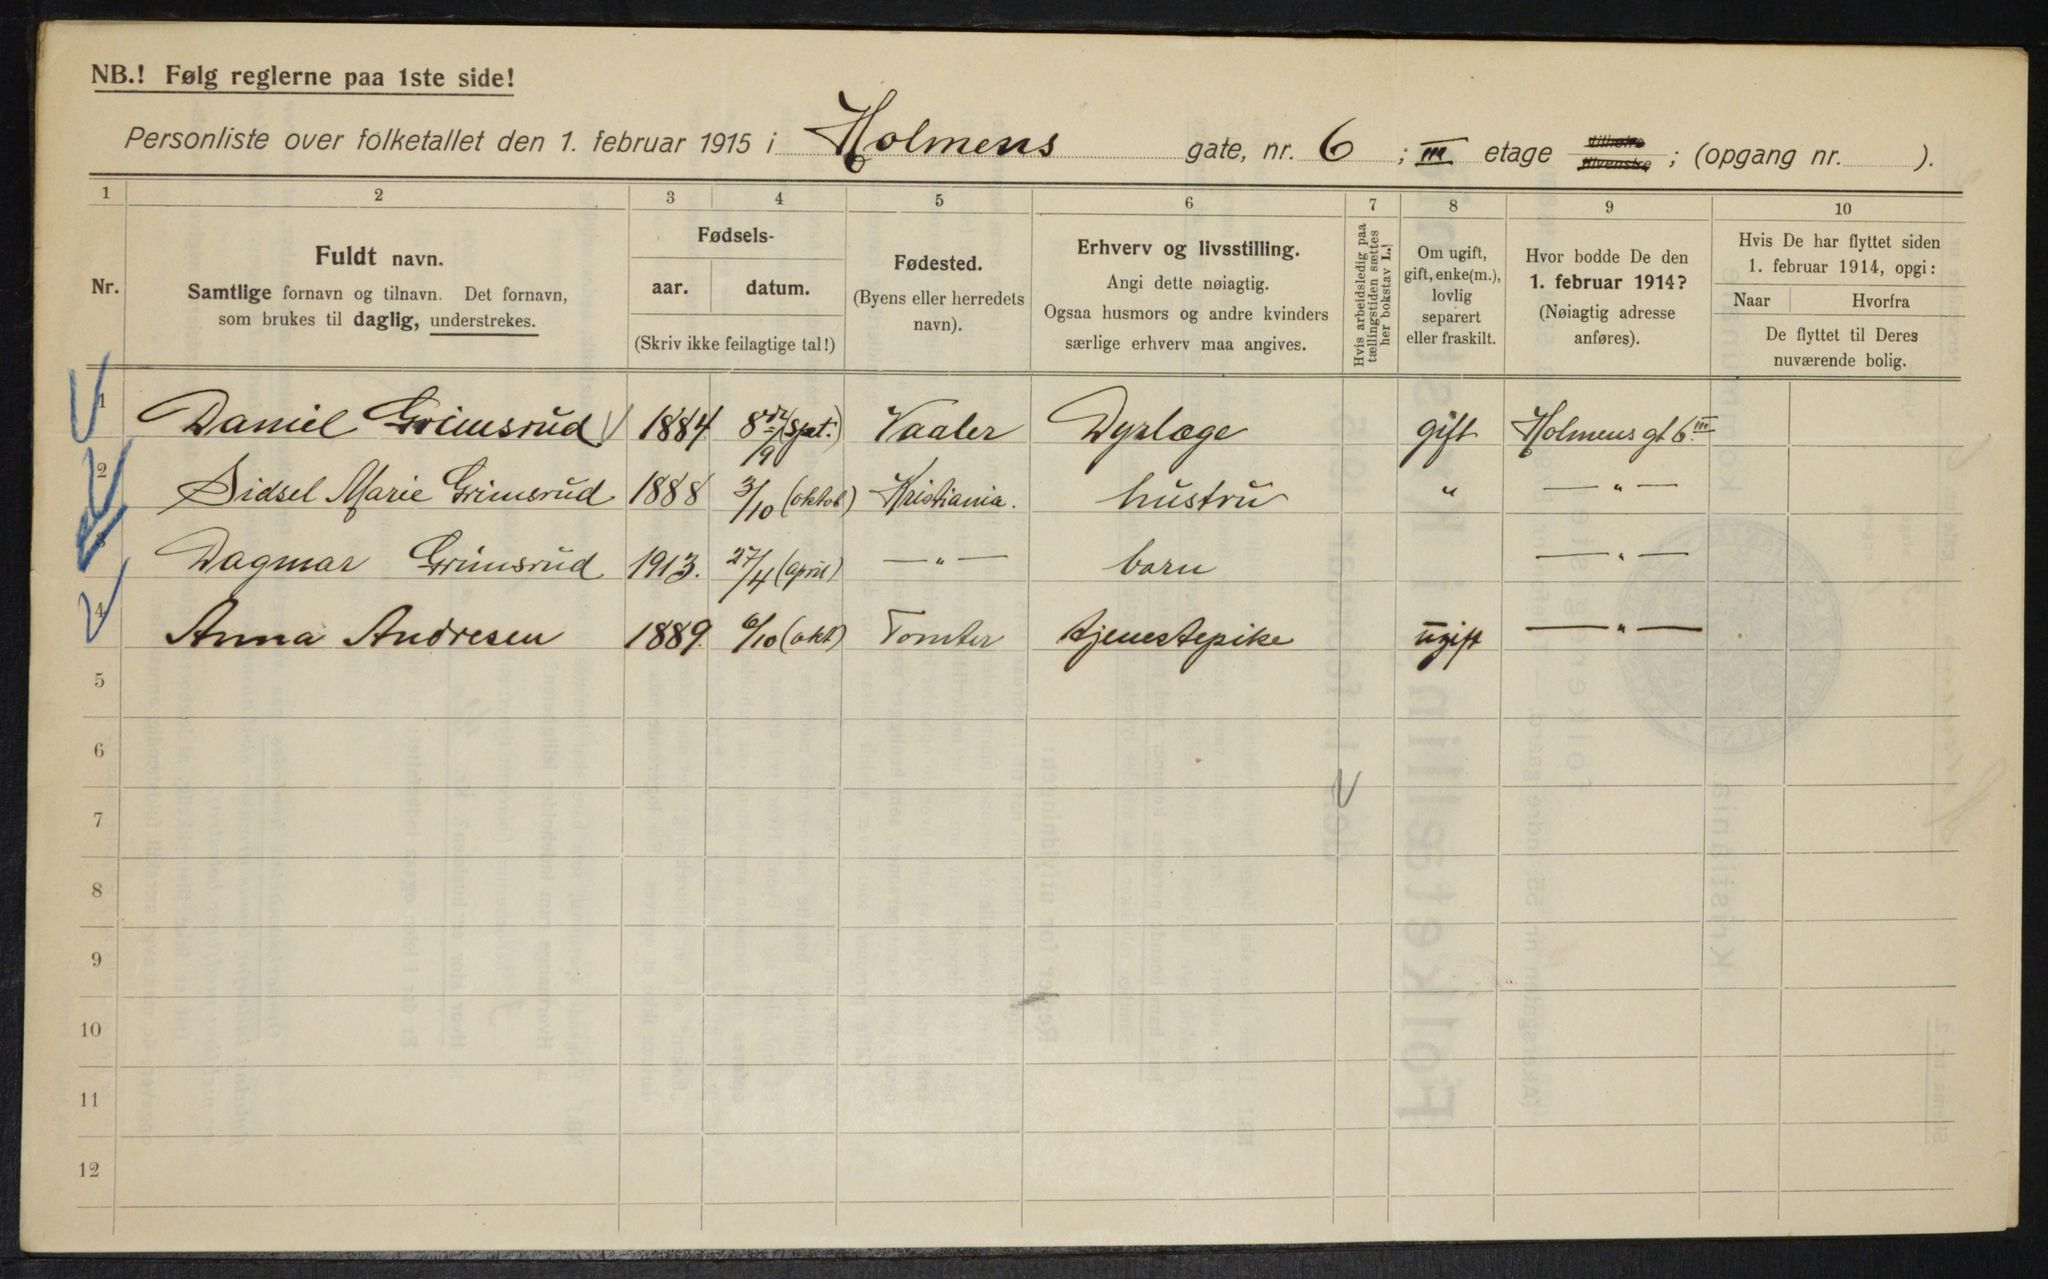 NB.! Følg reglerne paa 1ste side!
Personliste over folketallet den 1. februar 1915 i Holmens gate, nr. 6 ; III etage tilhøire tilvenstre ; (opgang nr. ).
1 2 3 4 5 6 7 8 9 10
Nr.
Fuldt navn.
Samtlige fornavn og tilnavn. Det fornavn,
som brukes til daglig, understrekes.
Fødsels-
aar. datum.
(Skriv ikke feilagtige tal!)
Fødested.
(Byens eller herredets
navn).
Erhverv og livsstilling.
Angi dette nøiagtig.
Ogsaa husmors og andre kvinders
særlige erhverv maa angives.
Hvis arbeidsledig paa
tællingstiden sættes
her bokstav L.!
Om ugift,
gift, enke(m.),
lovlig
separert
eller fraskilt.
Hvor bodde De den
1. februar 1914?
(Nøiagtig adresse
anføres).
Hvis De har flyttet siden
1. februar 1914, opgi:
Naar Hvorfra
De flyttet til Deres
nuværende bolig.
1 Daniel Grimsrud 1884 8de/9 (Spt.) Vaaler Dyrlæge gift Holmens gt 6 III
2 Sidsel Marie Grimsrud 1888 3/10 (oktob) Kristiania. hustru " — " —
3 Dagmar Grimsrud 1913. 27/4 (april) — " — barn — " —
4 Anna Andresen 1889. 6/10 (okt) Tomter tjenestepike ugift — " —
5
6
7
8
9
10
11
12